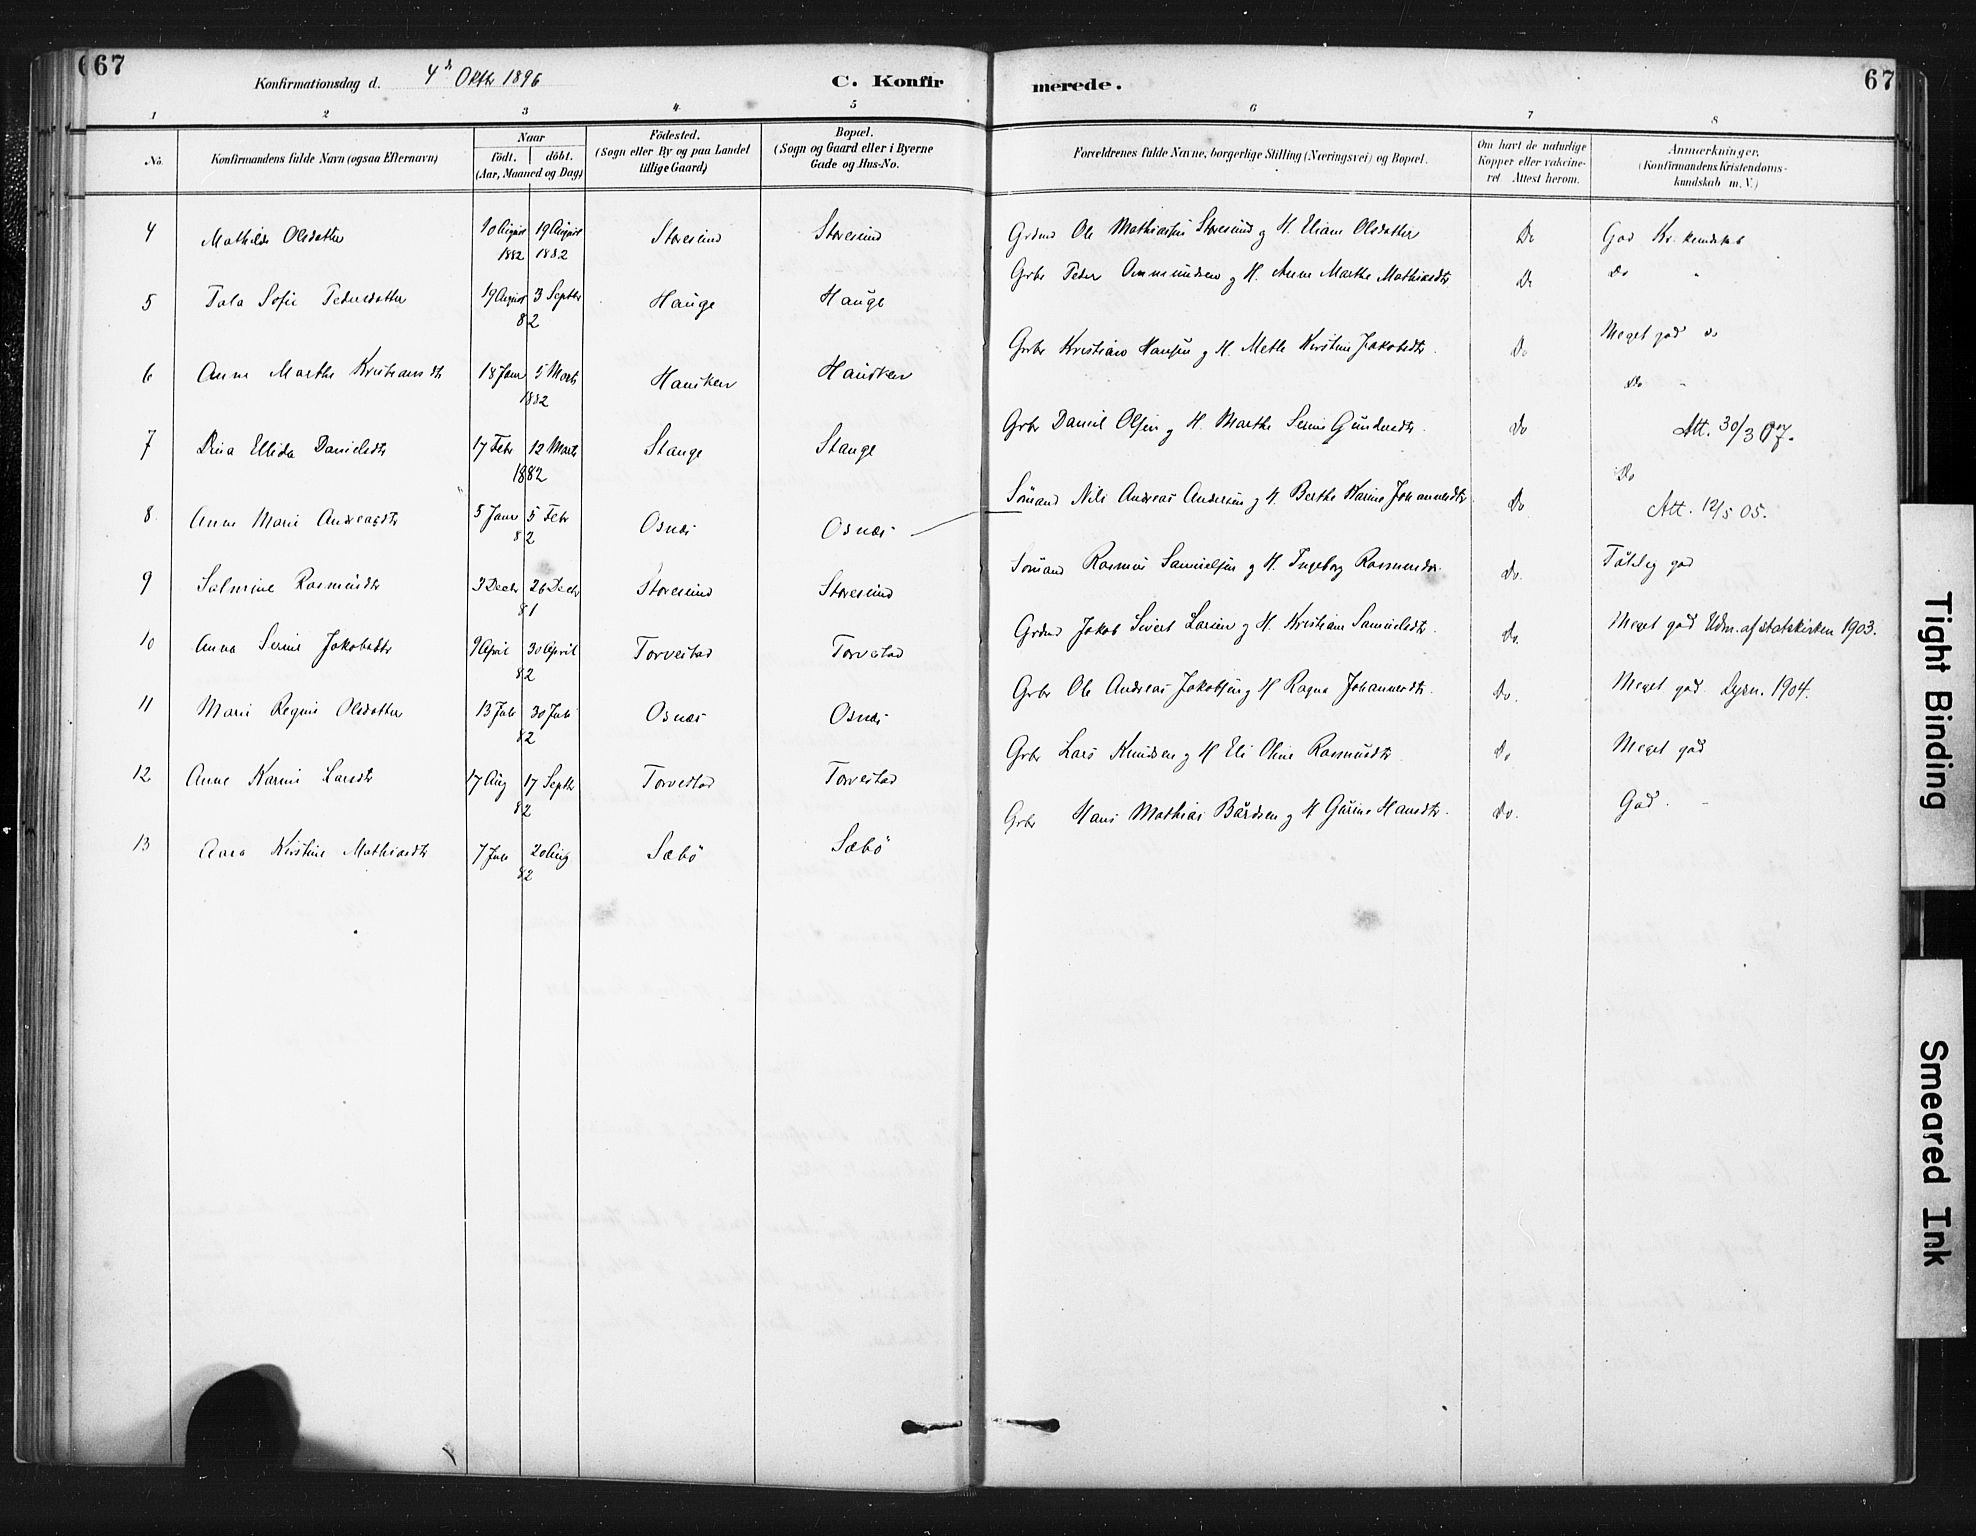 67
Konfirmationsdag d. 4de Oktbr 1896
C. Konfir
merede.
67
1 2 3 4 5 6 7 8
No.
Konfirmandens fulde Navn (ogsaa Efternavn)
Naar
födt. döbt.
(Aar, Maaned og Dag)
Födested.
(Sogn eller By og paa Landet
tillige Gaard)
Bopæl.
(Sogn og Gaard eller i Byerne
Gade og Hus-No.
Forældrenes fulde Navne, borgerlige Stilling (Næringsvei) og Bopæl.
Om havt de naturlige
Kopper eller vakcine-
ret. Attest herom.
Anmærkninger.
(Konfirmandens Kristendoms-
kundskab m. V.)
4 Mathilde Olsdatter 10 August 1882 19 August 1882 Storesund Storesund Grdmd Ole Mathiassen Storesund og H. Eliane Olsdatter Do God Kr. kundskab
5 Tala Sofie Pedersdatter 19 August 3 Septbr 82 Hauge Hauge Grbr Peder Ommundsen og H. Anne Marthe Mathiasdtr Do Do "
6 Anne Marthe Kristiansdtr 18 Janr 5 Marts 1882 Hausken Hausken Grbr Kristian Hansen og H. Mette Kirstine Jakobsdtr. Do Meget god do
7 Dina Ellida Danielsdtr 17 Febr 12 Marts 1882 Stange Stange Grbr Daniel Olsen og H. Marthe Serine Gundersdtr. Do Do "
Att. 30/3 07.
8. Anne Marie Andreasdtr 5 Janr 5 Febr 82 Osnæs Osnæs Sömand Nils Andreas Andersen og H. Berthe Karine Johannesdtr Do Do
Att. 12/5 05.
9 Salmine Rasmusdtr 3 Decbr 26 Decbr 81 Storesund Storesund Sömand Rasmus Samuelsen og H. Ingeborg Rasmusdtr. Do. Tålelig god
10 Anna Serine Jakobsdtr 9 April 30 April 82 Torvestad Torvestad Grdmd Jakob Sivert Larsen og H. Kristiane Samuelsdtr. Do. Meget god Udm. af statskirken 1903.
11 Marie Regine Olsdatter 13 Juli 30 Juli 82 Osnæs Osnæs Grbr Ole Andreas Jakobsen og H Ragna Johannesdtr. Do. Meget god. 1904.
12 Anne Karine Larsdtr 17 Aug 17 Septbr 82 Torvestad Torvestad Grbr Lars Knudsen og H Eli Oline Rasmusdtr. Do Meget god
13 Kirstine Mathiasdtr 7 Juli 20 Aug 82 Sæbö Sæbö Grbr Hans Mathias Bårdsen og H Gurine Hansdtr. Do. God. "
Tight Binding
Smeared Ink